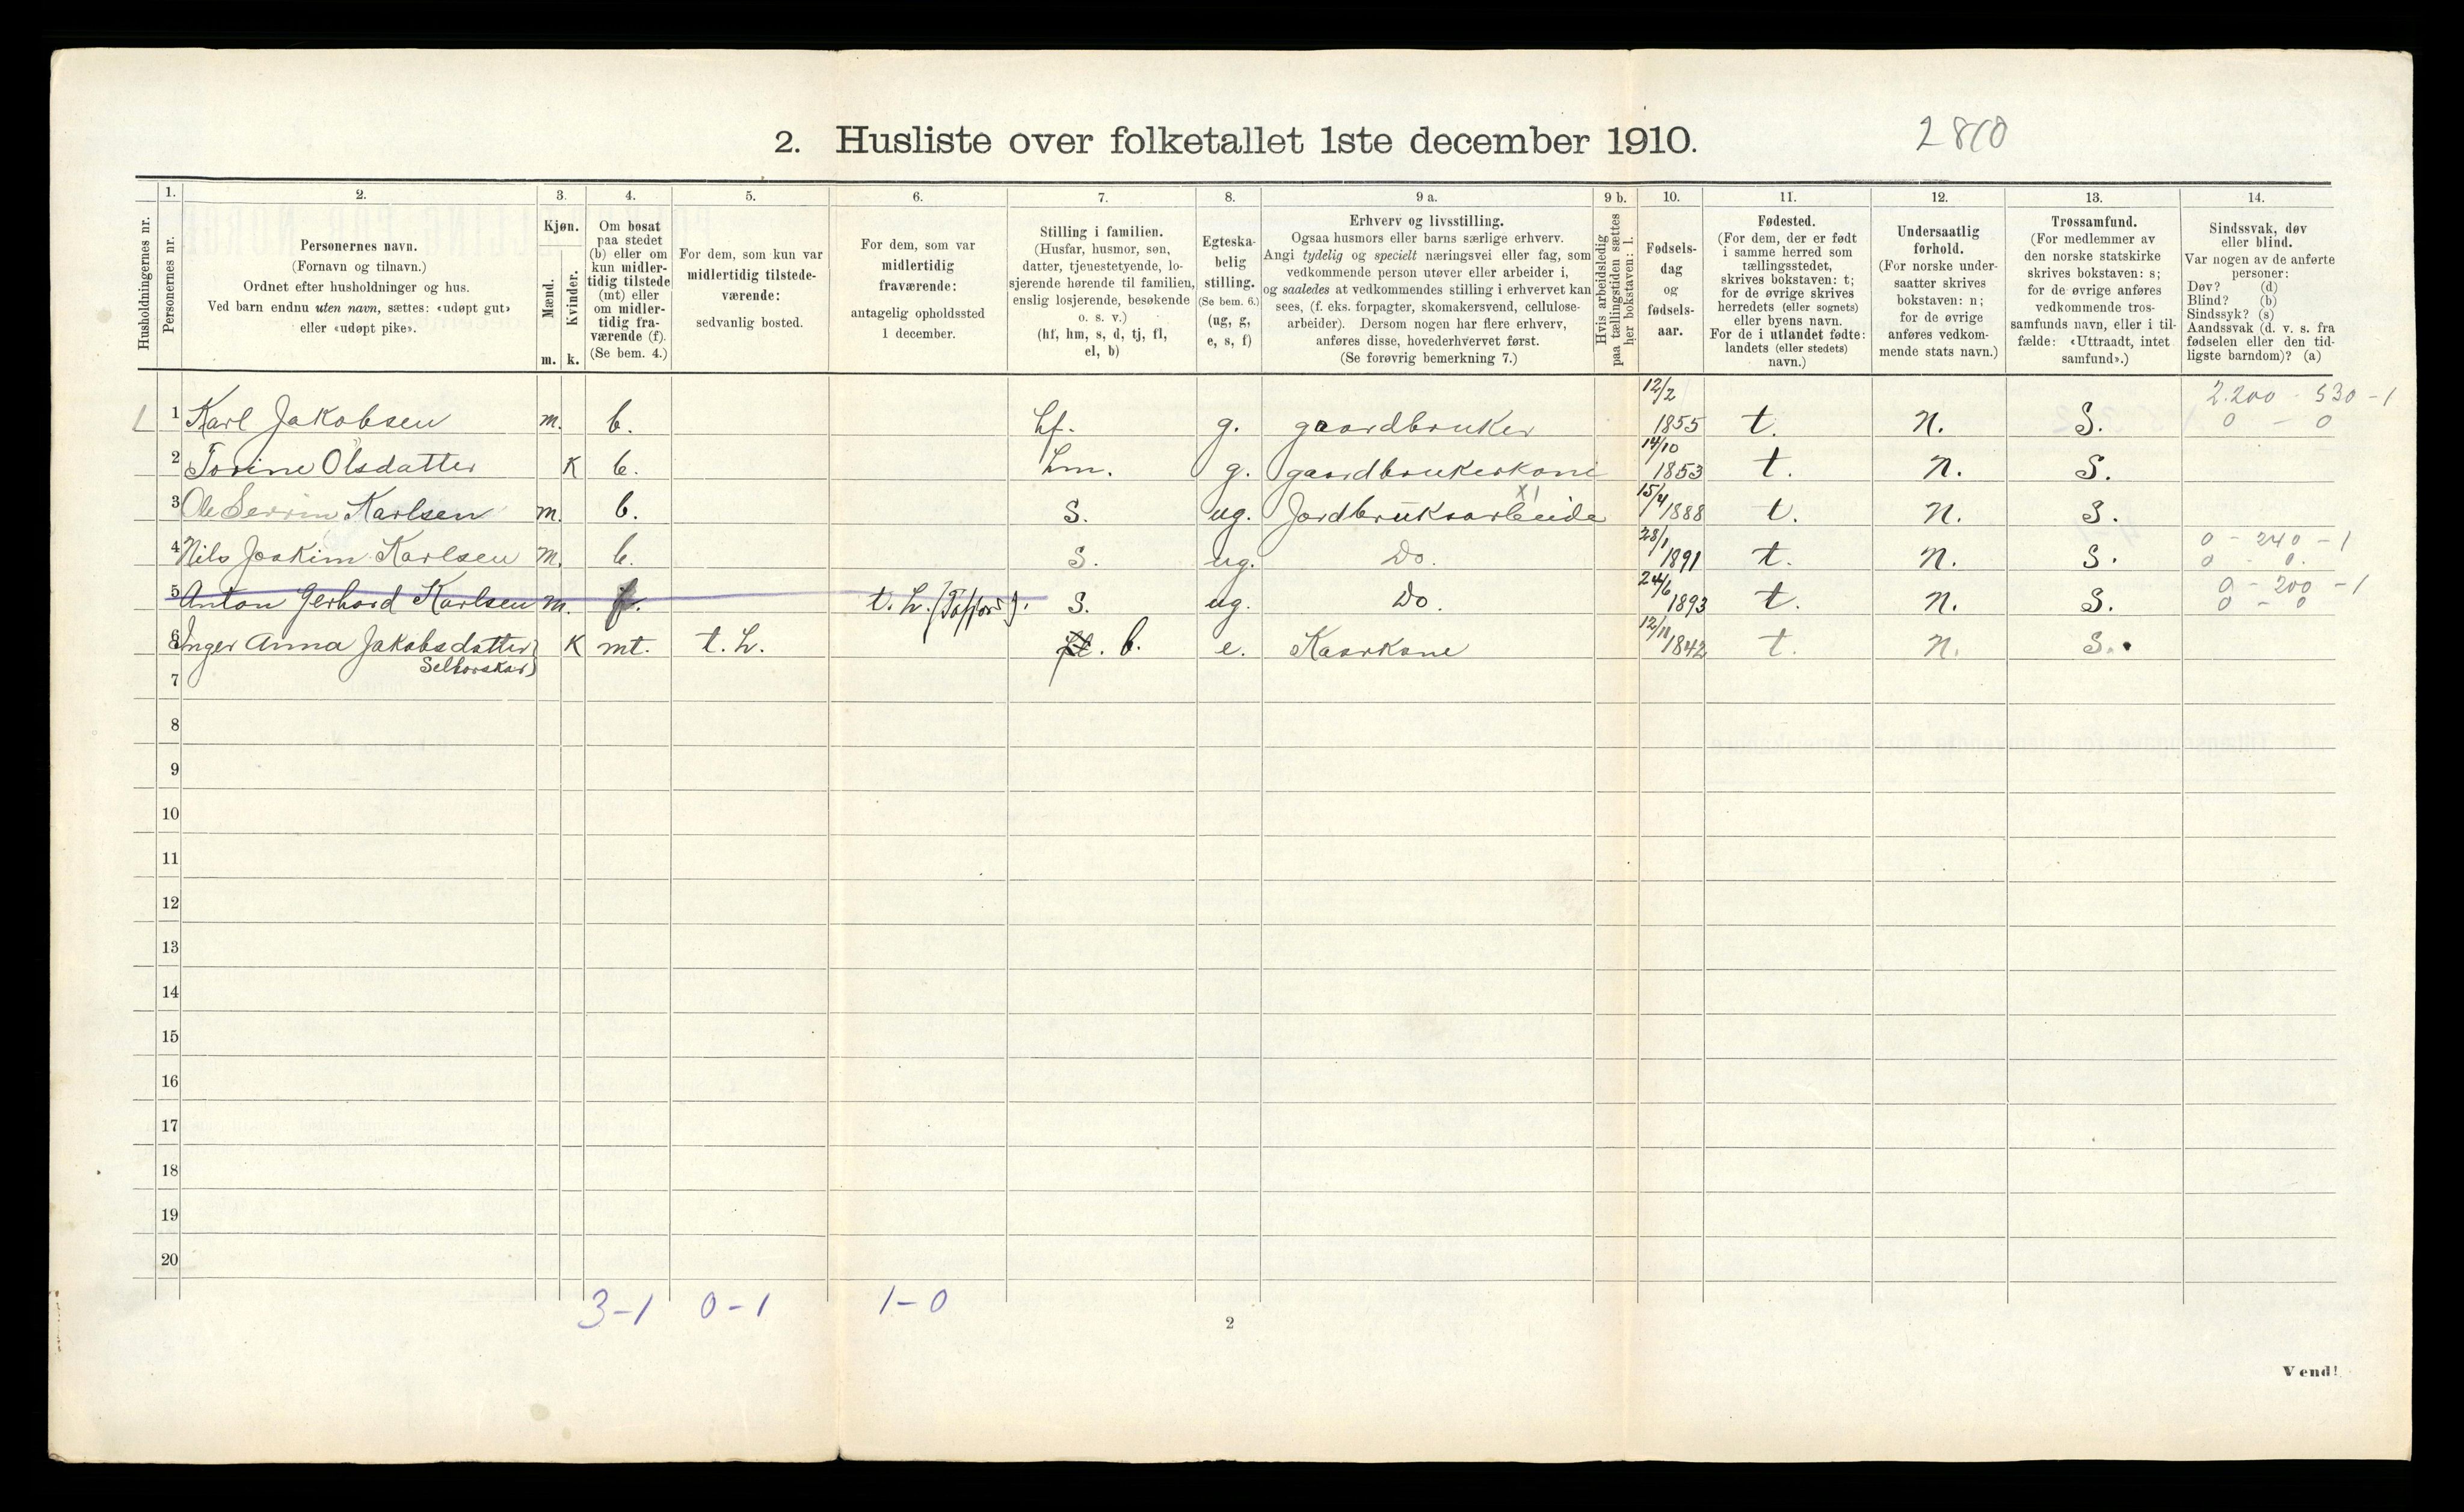 2. Husliste over folketallet 1ste december 1910.
2810
Husholdningernes nr.
1.
Personernes nr.
2.
Personernes navn.
(Fornavn og tilnavn.)
Ordnet efter husholdninger og hus.
Ved barn endnu uten navn, sættes: «udøpt gut»
eller «udøpt pike».
3.
Kjøn.
Mænd.
Kvinder.
m. k.
4.
Om bosat
paa stedet
(b) eller om
kun midler-
tidig tilstede
(mt) eller
om midler-
tidig fra-
værende (f).
(Se bem. 4.)
5.
For dem, som kun var
midlertidig tilstede-
værende:
sedvanlig bosted.
6.
For dem, som var
midlertidig
fraværende:
antagelig opholdssted
1 december.
7.
Stilling i familien.
(Husfar, husmor, søn,
datter, tjenestetyende, lo-
sjerende hørende til familien,
enslig losjerende, besøkende
o. s. v.)
(hf, hm, s, d, tj, fl,
el, b)
8.
Egteska-
belig
stilling.
(Se bem. 6.)
(ug, g,
e, s, f)
9 a.
Erhverv og livsstilling.
Ogsaa husmors eller barns særlige erhverv.
Angi tydelig og specielt næringsvei eller fag, som
vedkommende person utøver eller arbeider i,
og saaledes at vedkommendes stilling i erhvervet kan
sees, (f. eks. forpagter, skomakersvend, cellulose-
arbeider). Dersom nogen har flere erhverv,
anføres disse, hovederhvervet først.
(Se forøvrig bemerkning 7.)
9 b.
Hvis arbeidsledig
paa tællingstiden sættes
her bokstaven: l.
10.
Fødsels-
dag
og
fødsels-
aar.
11.
Fødested.
(For dem, der er født
i samme herred som
tællingsstedet,
skrives bokstaven: t;
for de øvrige skrives
herredets (eller sognets)
eller byens navn.
For de i utlandet fødte:
landets (eller stedets)
navn.)
12.
Undersaatlig
forhold.
(For norske under-
saatter skrives
bokstaven: n;
for de øvrige
anføres vedkom-
mende stats navn.)
13.
Trossamfund.
(For medlemmer av
den norske statskirke
skrives bokstaven: s;
for de øvrige anføres
vedkommende tros-
samfunds navn, eller i til-
fælde: «Uttraadt, intet
samfund».)
14.
Sindssvak, døv
eller blind.
Var nogen av de anførte
personer:
Døv? (d)
Blind? (b)
Sindssyk? (s)
Aandssvak (d. v. s. fra
fødselen eller den tid-
ligste barndom)? (a)
12/2 2.200 - 530 - 1
1 Karl Jakobsen m. b. hf. g. gaardbruker 1855 t. n. S. 0 - 0
14/10
2 Torine Olsdatter K b. hm. g. gaardbrukerkone 1853 t. n. S.
X1 15/4
3 Ole Karlsen m. b. S. ug. Jordbruksarbeide 1888 t. n. S.
28/1 0 - 240 - 1
4 Nils Joakim Karlsen m. b. S. ug. Do. 1891 t. n. S. 0 - 0.
24/6 0 - 200 - 1
5 Anton Gerhard Karlsen m. f. t. h. S. ug. Do. 1893 t. n. S. 0 - 0
12/11
6 Inger Anna Jakobsdatter K mt. t. h. fl. b. e. Kaarkone 1842 t. n. S.
7
8
9
10
11
12
13
14
15
16
17
18
19
20
3-1 0-1 1-0
2
Vend!